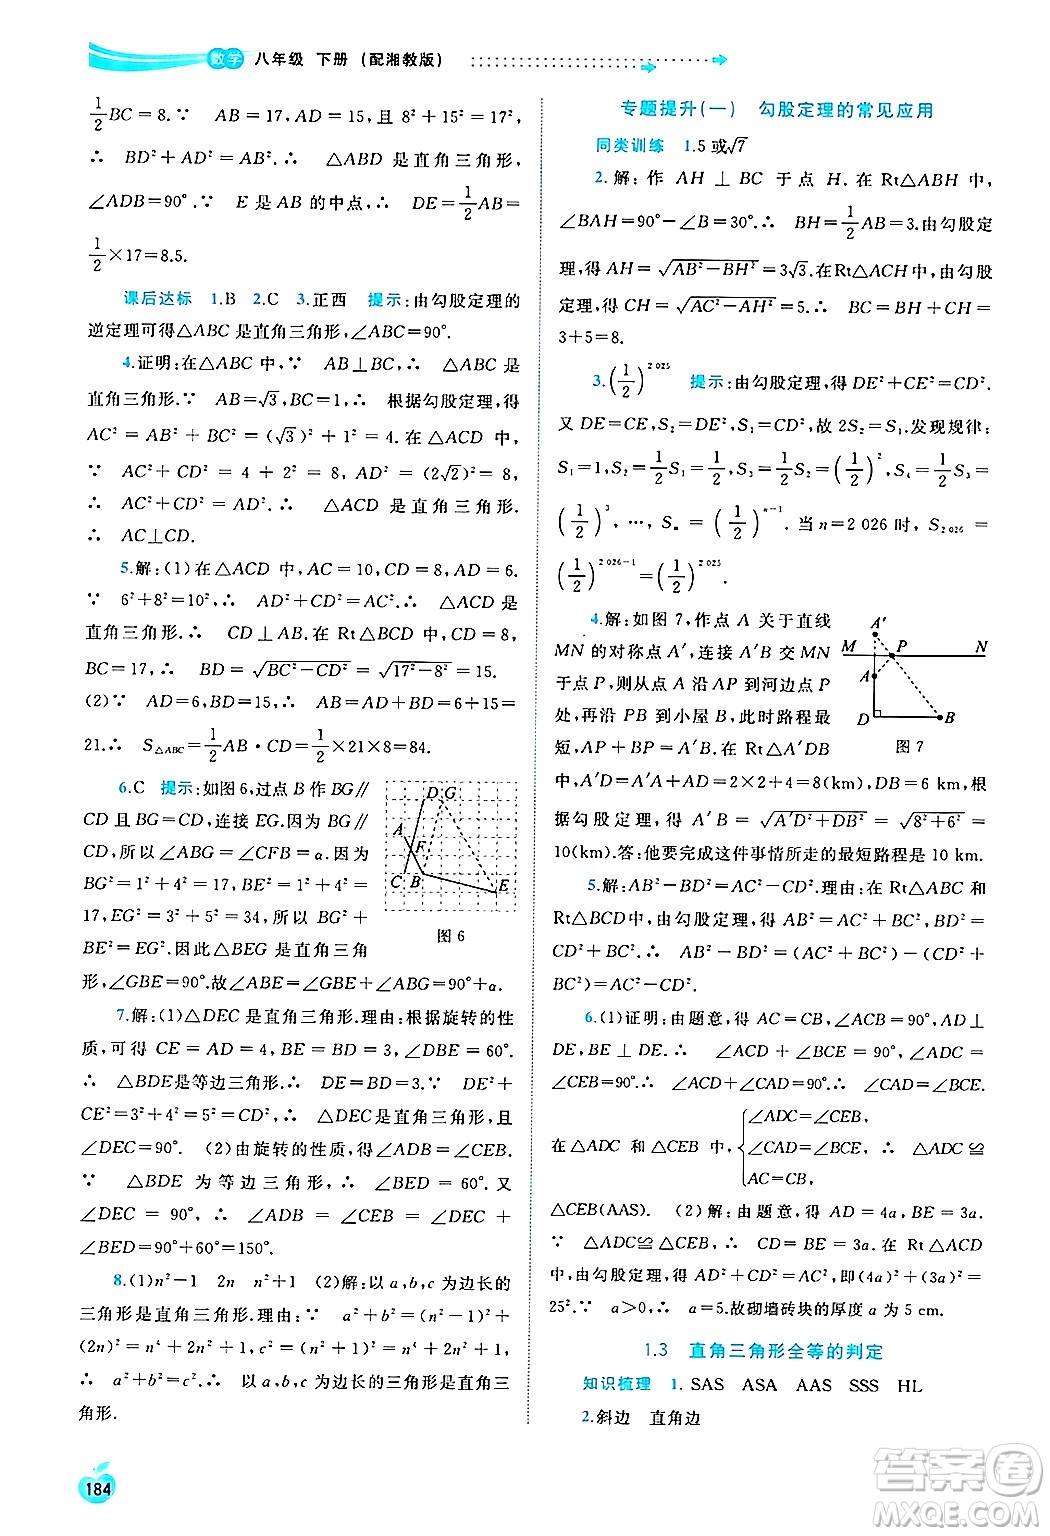 数学 八年级 下册 (配湘教版)
1/2 BC=8.∵ AB=17,AC=15,且 8²+15²=17²,
∴ BD²+AD²=AB².∴ △ABD 是直角三角形,
∠ADB=90°.∵ E 是 AB 的中点,∴ DE=1/2 AB=
1/2×17=8.5.
课后达标 1.B 2.C 3.正西 提示:由勾股定理的
逆定理可得△ABC 是直角三角形,∠ABC=90°.
4.证明:在△ABC 中,∵ AB⊥BC,∴ △ABC 是
直角三角形.∵ AB=√3,BC=1,∴ 根据勾股定理,得
AC²=AB²+BC²=(√3)²+1²=4.在△ACD 中,
∵ AC²+CD²=4+2²=8,AD²=(2√2)²=8,
∴ AC²+CD²=AD².∴ △ACD 是直角三角形.
∴ AC⊥CD.
5.解:(1)在△ACD 中,AC=10,CD=8,AD=6.
∵ 6²+8²=10²,∴ AD²+CD²=AC².∴ △ACD 是
直角三角形.∴ CD⊥AB.在 Rt△BCD 中,CD=8,
BC=17,∴ BD=√(BC²−CD²)=√(17²−8²)=15.
(2)∵ AD=6,BD=15,∴ AB=AD+BD=6+15=
21.∴ S△ABC=1/2 AB·CD=1/2×21×8=84.
6.C 提示:如图 6,过点 B 作 BG∥
CD 且 BG=CD,连接 EG.因为 BG∥
CD,所以∠ABG=∠CFB=α.因为
BG²=1²+4²=17,BE²=1²+4²=
17,EG²=3²+5²=34,所以 BG²+
BE²=EG².因此△BEG 是直角三角
形,∠GBE=90°.故∠ABE=∠GBE+∠ABG=90°+α.
D G
A
F
C B
E
图 6
7.解:(1)△DEC 是直角三角形.理由:根据旋转的性
质,可得 CE=AD=4,BE=BD=3,∠DBE=60°.
∴ △BDE是等边三角形.∴ DE=BD=3.∵ DE²+
CE²=3²+4²=5²=CD²,∴ △DEC是直角三角形,
∠DEC=90°. (2)由旋转的性质,得∠ADB=∠CEB.
∵ △BDE 为等边三角形,∴ ∠BED=60°.又
∠DEC=90°,∴ ∠ADB=∠CEB=∠DEC+
∠BED=90°+60°=150°.
8.(1)n²−1 2n n²+1 (2)解:以 a,b,c 为边长的
三角形是直角三角形.理由:∵ a²+b²=(n²−1)²+
(2n)²=n⁴−2n²+1+4n²=n⁴+2n²+1=(n²+1)²=c²,
∴ a²+b²=c².∴ 以 a,b,c 为边长的三角形是直角三
角形.
184
专题提升(一) 勾股定理的常见应用
同类训练 1.5 或√7
2.解:作 AH⊥BC 于点 H.在 Rt△ABH 中,
∠BAH=90°−∠B=30°.∴ BH=1/2 AB=3.由勾股定
理,得 AH=√(AB²−BH²)=3√3.在Rt△ACH中,由勾股
定理,得 CH=√(AC²−AH²)=5.∴ BC=BH+CH=
3+5=8.
3.(1/2)²⁰²⁵ 提示:由勾股定理,得 DE²+CE²=CD².
又 DE=CE,S₂=DE²,S₁=CD²,故 2S₂=S₁.发现规律:
S₁=1,S₂=1/2 S₁=1/2,S₃=1/2 S₂=(1/2)²,S₄=1/2 S₃=
(1/2)³,…,Sₙ=(1/2)ⁿ⁻¹.当 n=2 026 时,S₂₀₂₆=
(1/2)²⁰²⁶⁻¹=(1/2)²⁰²⁵.
4.解:如图 7,作点 A 关于直线
MN 的对称点 A′,连接 A′B 交 MN
于点 P,则从点 A 沿 AP 到河边点 P
处,再沿 PB 到小屋 B,此时路程最
短,AP+BP=A′B.在Rt△A′DB
中,A′D=A′A+AD=2×2+4=8(km),DB=6 km,根
据勾股定理,得 A′B=√(A′D²+DB²)=√(8²+6²)=
10(km).答:他要完成这件事情所走的最短路程是 10 km.
A′
M P N
A
D B
图 7
5.解:AB²−BD²=AC²−CD².理由:在 Rt△ABC 和
Rt△BCD 中,由勾股定理,得 AB²=AC²+BC²,BD²=
CD²+BC².∴ AB²−BD²=(AC²+BC²)−(CD²+
BC²)=AC²−CD².
6.(1)证明:由题意,得 AC=CB,∠ACB=90°,AD⊥
DE,BE⊥DE.∴ ∠ACD+∠CAD=90°,∠ACD+
∠CEB=90°.∴ ∠CAD=∠BCE.
在△ADC 和△CEB 中,{∠ADC=∠CEB,
∠CAD=∠BCE,∴ △ADC≌
AC=CB,
△CEB(AAS). (2)解:由题意,得 AD=4a,BE=3a.
∵ △ADC≌△CEB,∴ CD=BE=3a.在 Rt△ACD
中,由勾股定理,得 AD²+CD²=AC²,即(4a)²+(3a)²=
25².∵ a>0,∴ a=5.故砌墙砖块的厚度 a 为 5 cm.
1.3 直角三角形全等的判定
知识梳理 1. SAS ASA AAS SSS HL
2.斜边 直角边
答案圈
MXQE.COM